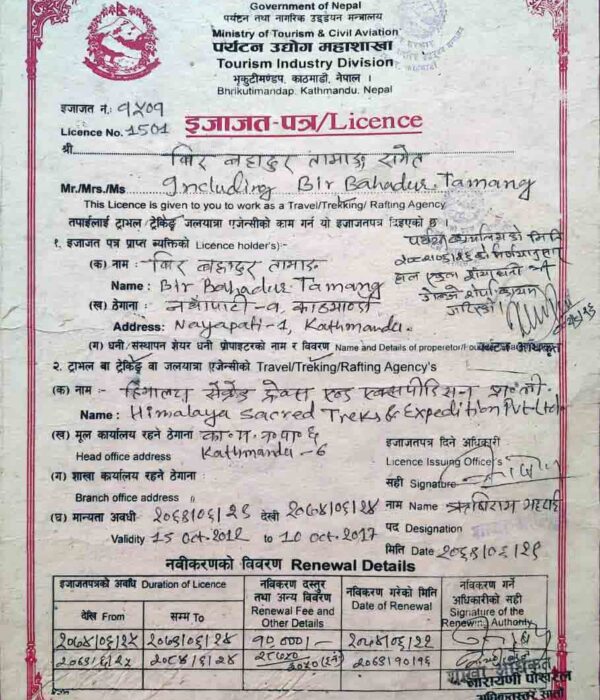 Government of Nepal
पर्यटन तथा नागरिक उड्डयन मन्त्रालय
Ministry of Tourism & Civil Aviation
पर्यटन उद्योग महाशाखा
Tourism Industry Division
भृकुटीमण्डप, काठमाडौं, नेपाल ।
Bhrikutimandap, Kathmandu, Nepal
इजाजत नं. १५०१
Licence No. 1501
इजाजत-पत्र/Licence
श्री बिर बहादुर तामाङ समेत
Mr./Mrs./Ms Including Bir Bahadur Tamang
This Licence is given to you to work as a Travel/Trekking/ Rafting Agency
तपाईलाई ट्राभल/ट्रेकिङ्ग/जलयात्रा एजेन्सीको काम गर्न यो इजाजतपत्र दिइएको छ
१. इजाजत पत्र प्राप्त ब्यक्तिको Licence holder's):-
(क) नाम : बिर बहादुर तामाङ
Name : Bir Bahadur Tamang
(ख) ठेगाना : नयाँपाटी-१, काठमाडौं
Address: Nayapati-1, Kathmandu.
(ग) धनी/संस्थापन शेयर धनी प्रोपाइटरको नाम र विवरण Name and Details of properetor/
२. ट्राभल बा ट्रेकिङ्ग वा जलयात्रा एजेन्सिको Travel/Trekking/Rafting Agency's
(क) नाम : हिमालय सेक्रेड ट्रेक्स एण्ड एक्सपीडिसन प्रा.ली.
Name : Himalaya Sacred Treks & Expedition Pvt. Ltd.
(ख) मूल कार्यालय रहने ठेगाना का.म.न.पा. ६
Head office address Kathmandu - 6
(ग) शाखा कार्यालय रहने ठेगाना :
Branch office address
(घ) मान्यता अवधी २०६९/०६/२९ देखी २०७४/०६/२४
Validity 15 Oct. 2012 to 10 Oct. 2017
इजाजतपत्र दिने अधिकारी
Licence Issuing Officer's
सही Signature
नाम Name ऋषिराम भट्टराई
पद Designation
मिति Date २०६९/०६/२९
नवीकरणको विवरण Renewal Details
इजाजतपत्रको अवधि Duration of Licence
देखि From
सम्म To
नविकरण दस्तुर तथा अन्य विवरण
Renewal Fee and Other Details
नविकरण गरेको मिति
Date of Renewal
नविकरण गर्ने अधिकारीको सही
Signature of the Renewing Authority
२०७४/०६/२५ २०७९/०६/२४ १०,०००/- २०७४/०६/२२
२०७९/६/२५ २०८४/६/२४ २०७९/०१/१६
शाखा अधिकृत
नारायणी पोखरेल